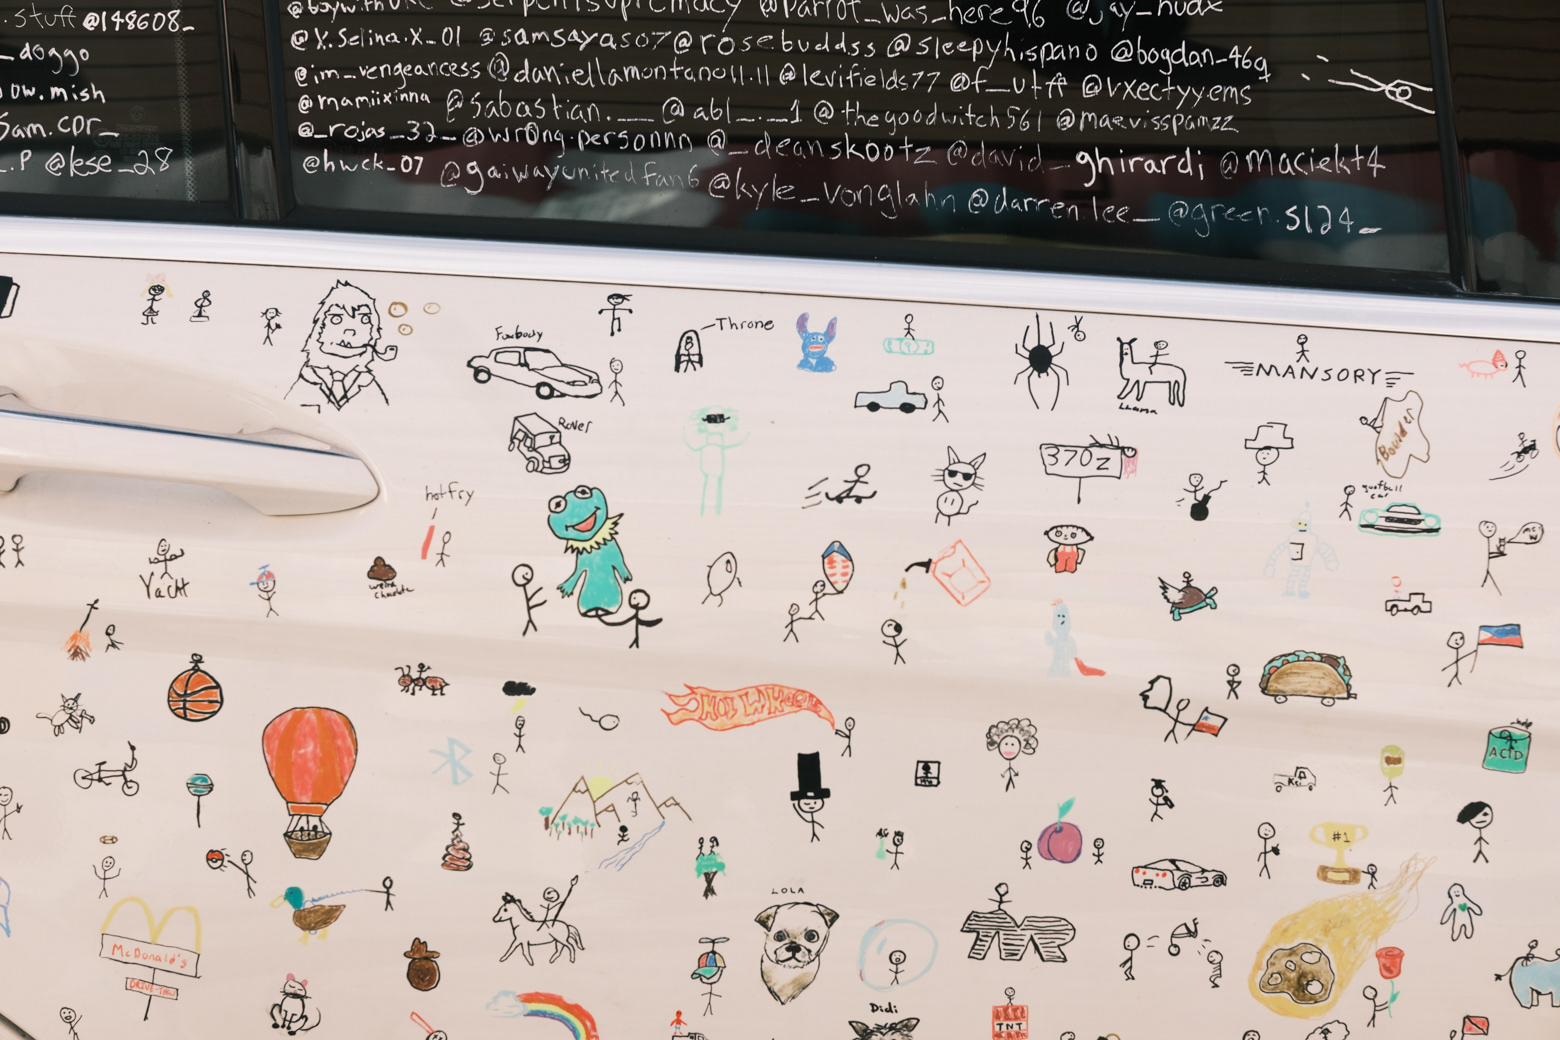 stuff @148608_
_doggo
ow.mish
Sam.cor_
.P @kse_28
@serpentsupremacy @parrot_was_here96 @jay_hudx
@X.Selina.X_01 @samsayaso7 @rosebuddss @sleepyhispano @bogdan_46g
@im_vengeancess @daniellamontano11.11 @levifields77 @f_utff @vxectyyems
@mamiixinna @sabastian.___ @abl_._1 @thegoodwitch561 @maevisspamzz
@_rojas_32_ @wr0ng.personnn @_deanskootz @david_ghirardi @maciekt4
@hwck_07 @gaiwayunitedfan6 @kyle_vonglahn @darren.lee_ @green.S124_
Foxbody
Throne
Llama
MANSORY
Rover
370z
Boulder
hotfry
Yacht
weird
chocolate
car
HOT WHEELS
ACID
help
#1
LOLA
McDonald's
DRIVE-THRU
TVR
Didi
TNT